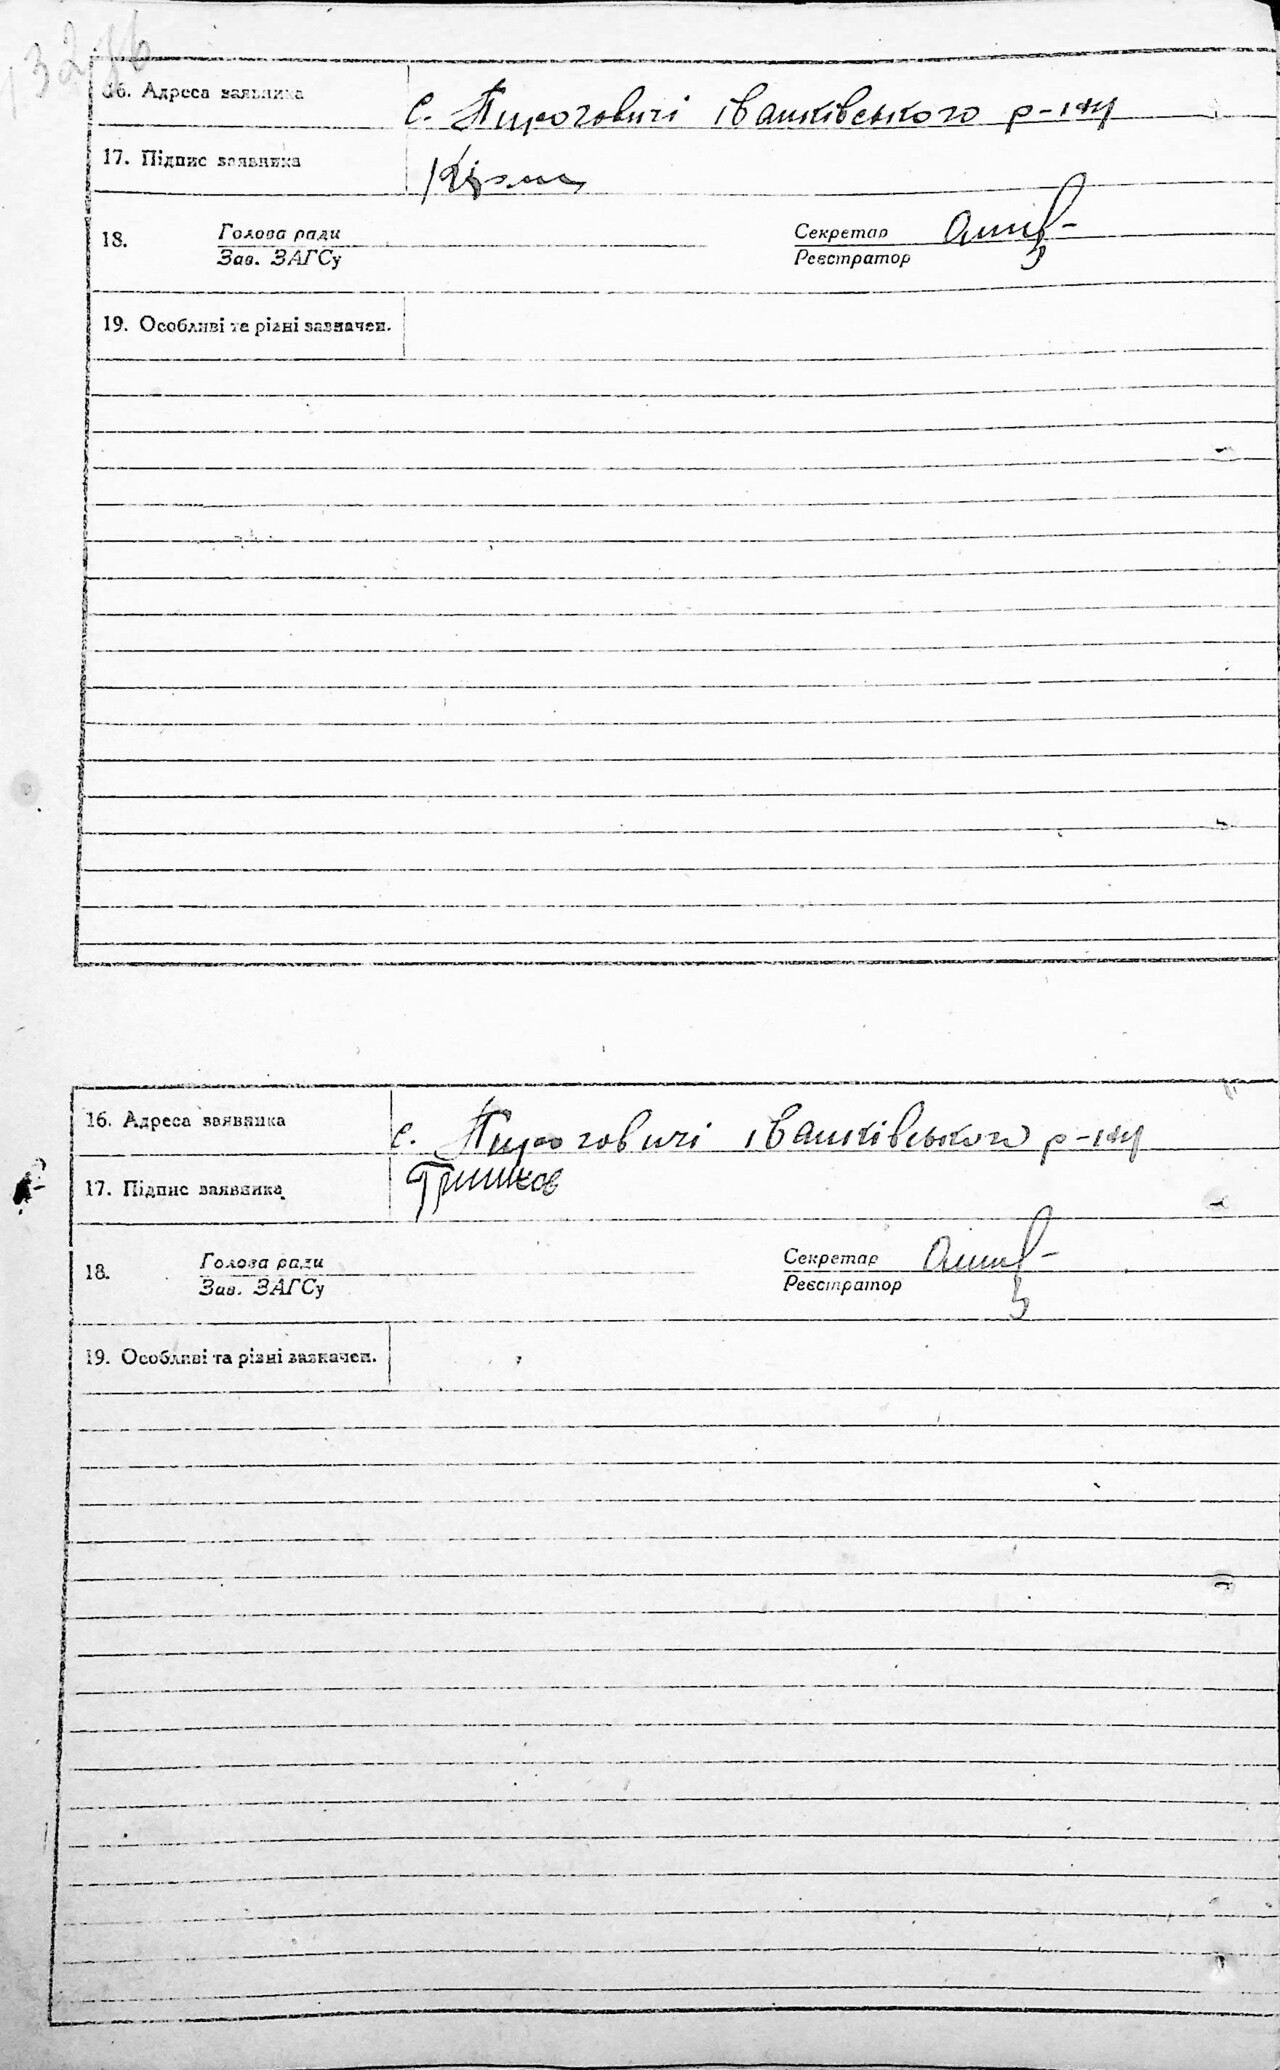 16. Адреса заявника
с. Пироговичі іванківського р-ну
17. Підпис заявника
18. Голова ради Секретар
Зав. ЗАГСу Реєстратор
19. Особливі та різні зазначен.
16. Адреса заявника
с. Пироговичі іванківського р-ну
17. Підпис заявника Гришков
18. Голова ради Секретар
Зав. ЗАГСу Реєстратор
19. Особливі та різні зазначен.